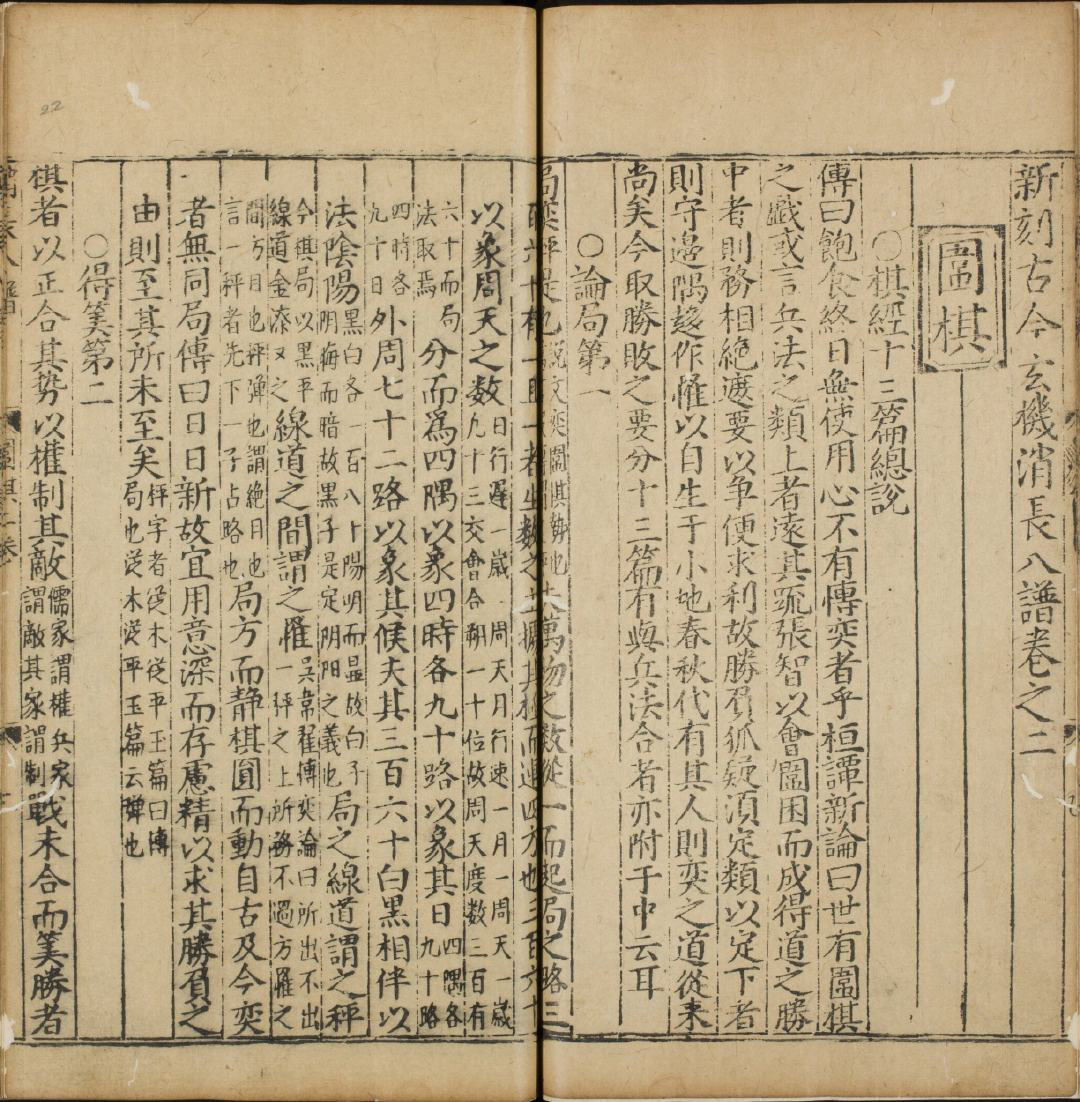 新刻古今玄機消長八譜卷之二
圍棋
○棋經十三篇總說
傳曰飽食終日無使用心不有傳奕者乎桓譚新論曰世有圍棋
之戲或言兵法之類上者遠其䟽張智以會圍困而成得道之勝
中者則務相絶遮要以争便求利故勝負狐疑須定類以定下者
則守邊隅趍作罹以自生于小地春秋代有其人則奕之道從来
尚矣今取勝敗之要分十三篇有與兵法合者亦附于中云耳
○論局第一
萬物之数從一而起局之路三
一者生数之主據其極而運四方也三百六十
以象周天之数日行遲一歲周天月行速一月一周天一歲九十三交會合朔一十位故周天度数三百有
六十而局法取焉分而爲四隅以象四時各九十路以象其日四隅各九十路
四時各九十日外周七十二路以象其候夫其三百六十白黒相伴以
法陰陽黒白各一百八十陽明而显故白子阴晦而暗故黒子是定阴阳之義也局之線道謂之秤
今棋局以黒平線道金漆又之吳韋曜博奕論曰所出不出線道之間謂之罹一秤之上所務不過方罹之
間方目也秤弹也謂絶目也言一秤者先下一子占略也局方而静棋圓而動自古及今奕
者無同局傳曰日日新故宜用意深而存慮精以求其勝負之
由則至其所未至矣秤字者從木從平玉篇曰博局也從木從平玉篇云弹也
○得筭第二
棋者以正合其势以權制其敵儒家謂權兵家謂敵其家謂制戰未合而筭勝者
圍棋二卷
22